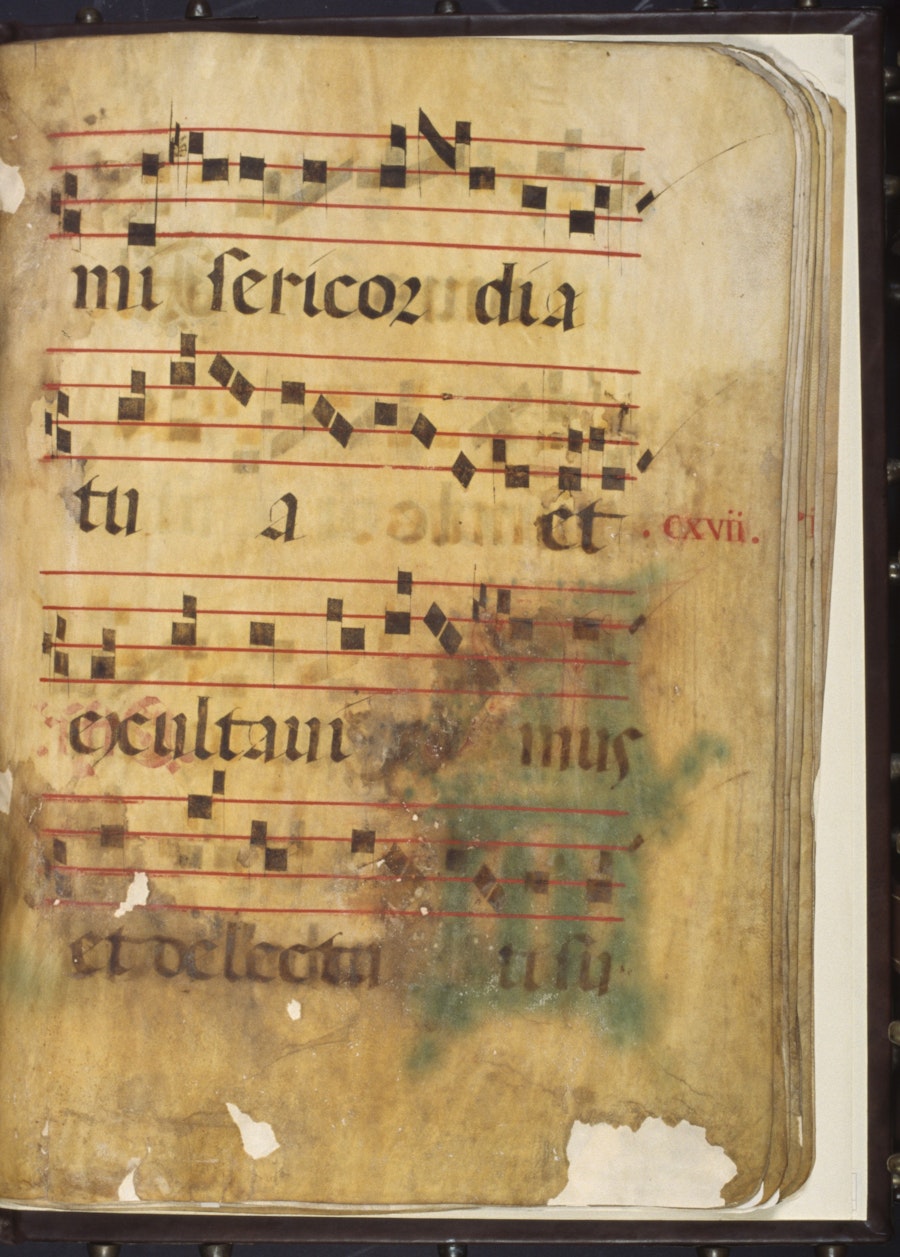 mi sericor dia
tu a et
. cxvii.
exultaui mus
et delectati su